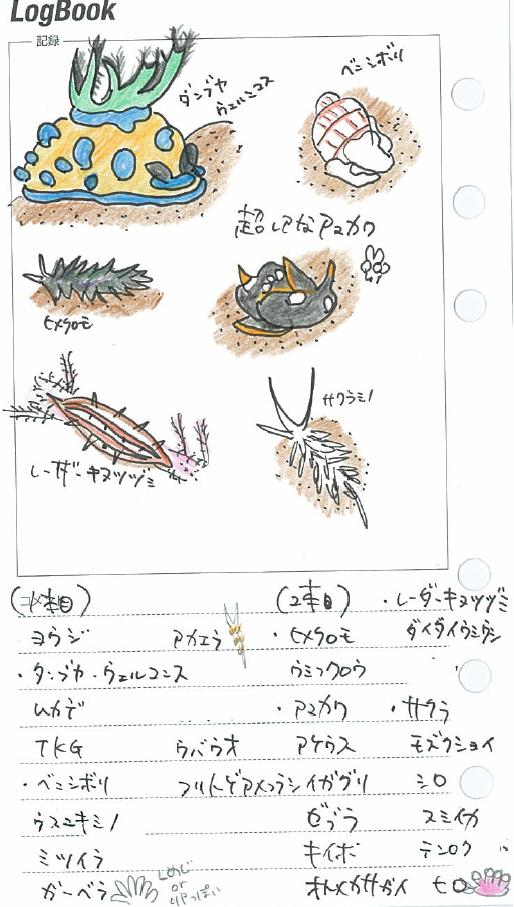 LogBook
記録
ダンブヤ
ウェルコニス
ベニシボリ
超レアなアマカワ
ヒメクロモ
レーザーキヌヅツミ
サクラミノ
(1本目)
ヨウジ アカエラ
・ダンブヤ・ウェルコニス
ムカデ
TKG ウバウオ
・ベニシボリ フリトゲアメフラシ
ウスユキミノ
ミツイラ
ガーベラ しめじ or リアっぽい
(2本目) ・レーダーキヌヅツミ
・ヒメクロモ ダイダイウミウシ
ウミフクロウ
・アマカワ ・サクラ
アケウス モズクショイ
イガグリ シロ
ゼブラ スミイカ
キイボ テンロク
オトメガサガイ ヒロ